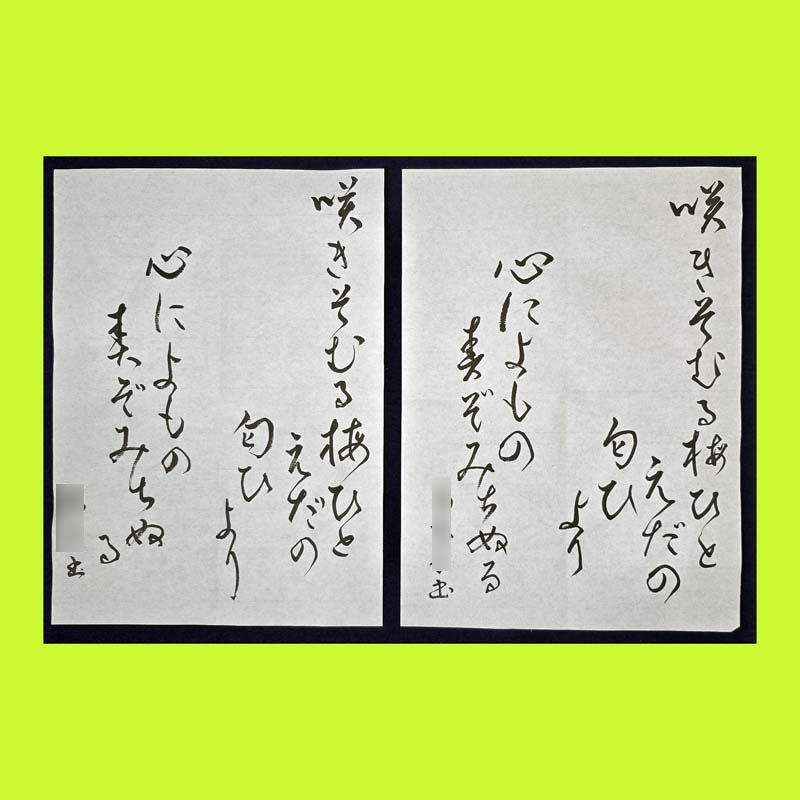 咲きそむる梅ひと
えだの
匂ひ
より
心によもの
春ぞみちぬる
書
咲きそむる梅ひと
えだの
匂ひ
より
心によもの
春ぞみちぬ
る
書